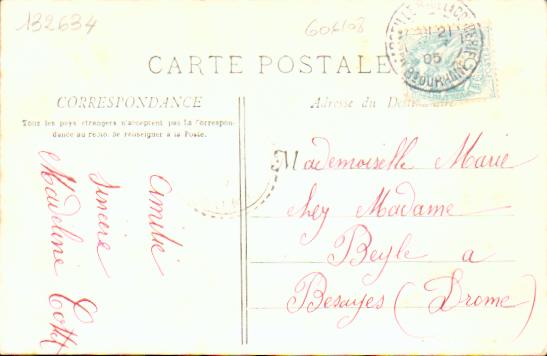 132634
CARTE POSTALE
CORRESPONDANCE
Tous les pays étrangers n'acceptent pas la Correspon-
dance au recto. Se renseigner à la Poste.
Adresse du Destinataire
Amitié
sincère
Madeleine
Mademoiselle Marie
chez Madame
Beyle a
Besayes (Drome)
21
05